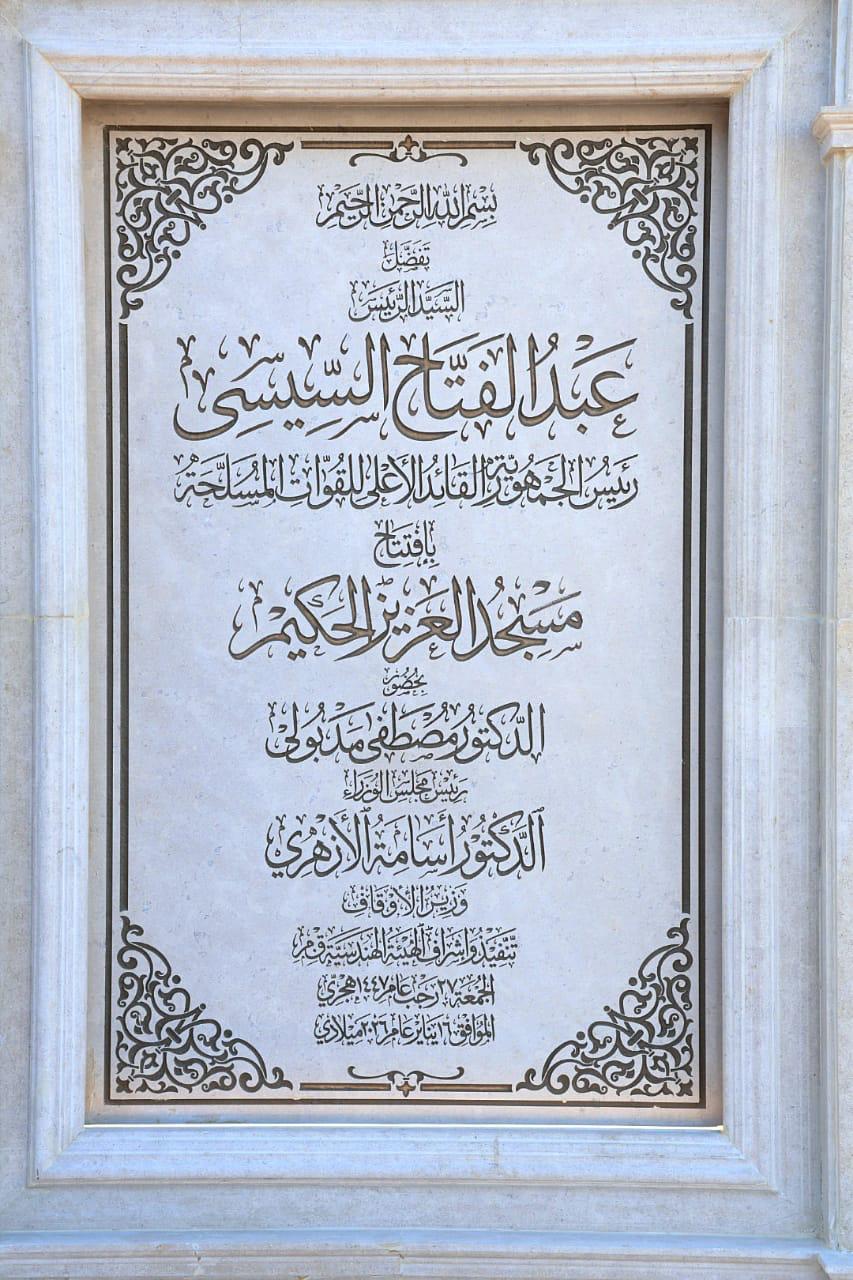 بِسْمِ اللهِ الرَّحْمنِ الرَّحِيْمِ
تَفَضَّلَ
السَّيِّدُ الرَّئِيسُ
عَبْدُ الْفَتَّاحِ السِّيسِى
رَئِيسُ الجُمْهُورِيَّةِ القَائِدُ الأَعْلَى لِلقُوَّاتِ المُسَلَّحَةُ
بِإفْتِتَاحِ
مَسْجِدُ العَزِيزِ الحَكِيمِ
بِحُضُورِ
الدّكتُورُ مُصْطَفى مَدْبُولِى
رَئِيسُ مَجْلِسِ الوُزَرَاءِ
الدَّكْتُورُ أُسَامَةُ الأَزْهَرِي
وَزِيرُ الأَوْقَافِ
تَنْفِيذُ وَإِشْرَافُ الهَيْئَةِ الهَنْدَسِيَّةِ ق.م
الجُمُعَة، ٢٧ رجب عام ١٤٤٧ هِجْرِيّ
المُوَافِق ١٦ يناير عام ٢٠٢٦ مِيلَادِي